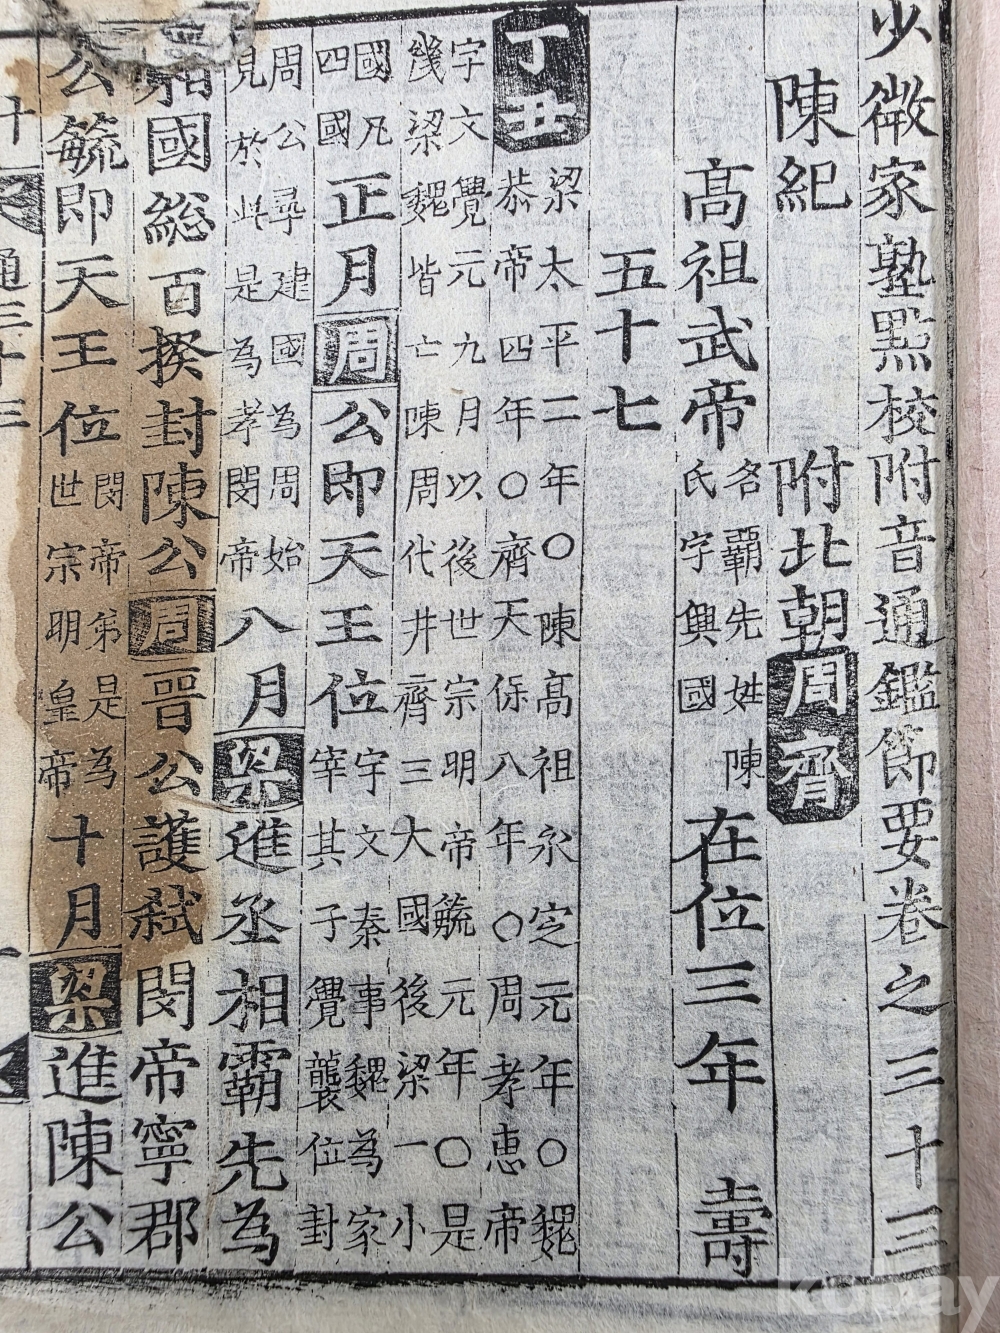 少微家塾點校附音通鑑節要卷之三十三
陳紀 附北朝周齊
高祖武帝
名覇先姓陳
氏字興國
在位三年 壽
五十七
丁丑
梁太平二年○陳高祖永定元年○魏
恭帝四年○齊天保八年○周孝惠帝
字文覺元九月以後世宗明帝毓元年○是
幾梁魏皆亡陳周代井齊三大國後梁一小
國凡
四國
正月周公即天王位
宇文秦事魏為家
宰其子覺襲位封
周公尋建國為周始
見於此是為孝閔帝
八月梁進丞相霸先為
相國総百揆封陳公周晋公護弑閔帝寧郡
公毓即天王位
閔帝弟是為
世宗明皇帝
十月梁進陳公
通三十三
kobay